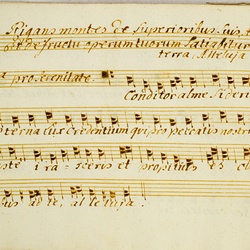 Rigans montes de superioribus suis
de fructu operum tuorum satiabitur
terra, Alleluja
pro serenitate.
Conditor alme Sideru
terna lux credentium qui pro peccatis nostris
iste irasceris et propitius es
ad te, alleluja.